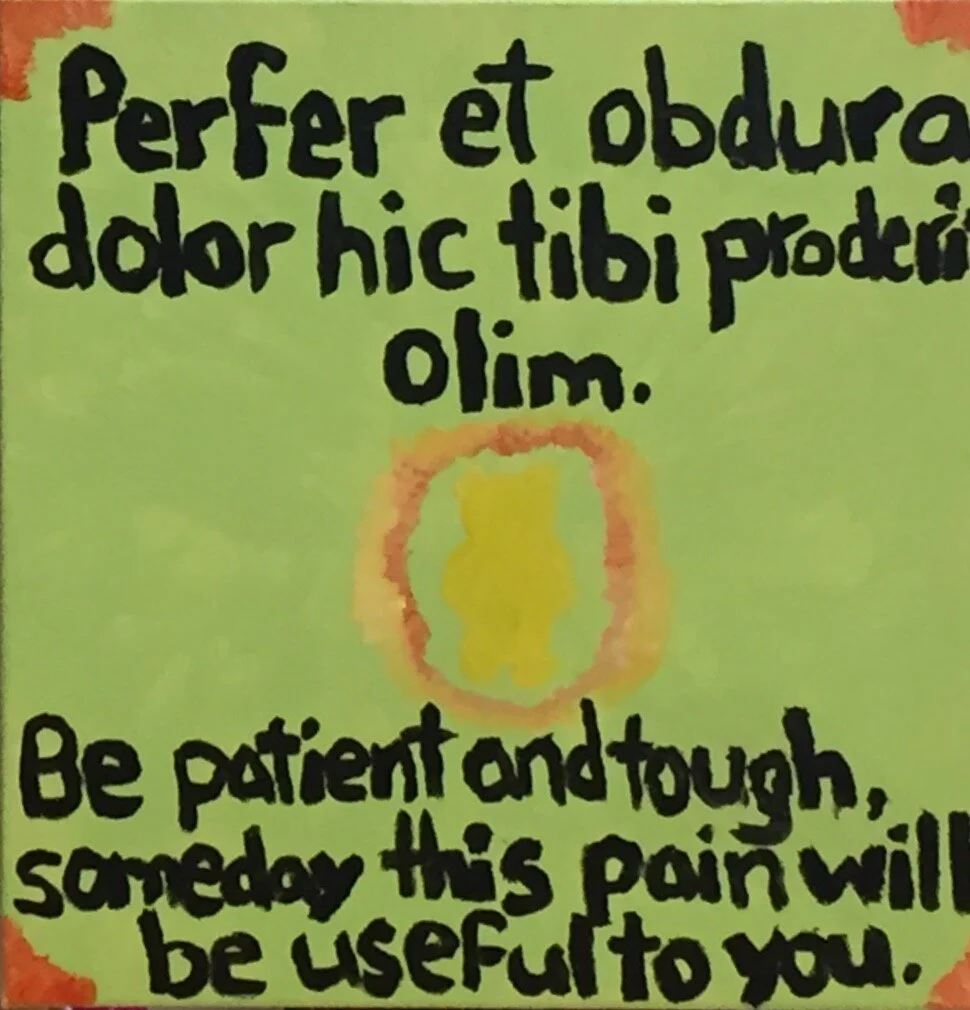 Perfer et obdura
dolor hic tibi proderit
olim.
Be patient and tough,
someday this pain will
be useful to you.